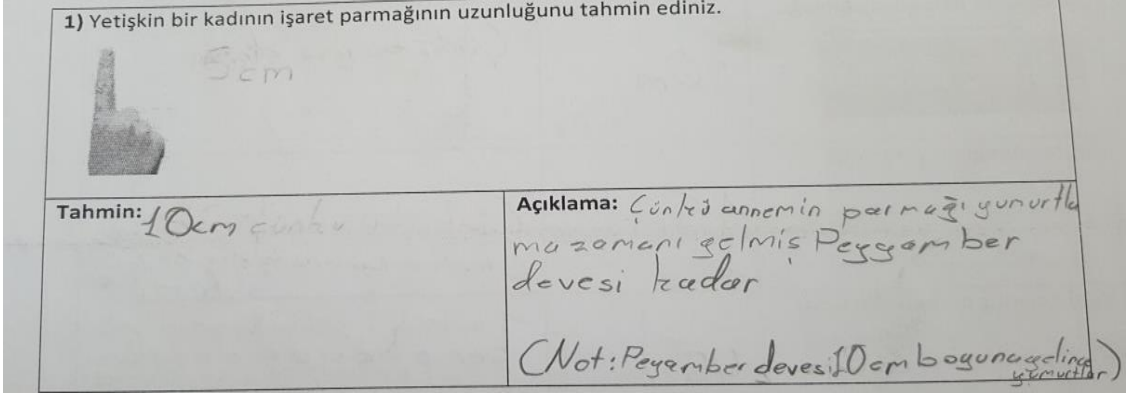 1) Yetişkin bir kadının işaret parmağının uzunluğunu tahmin ediniz.
5cm
Tahmin: 10cm çünkü
Açıklama: Çünkü annemin parmağı yumurtla
ma zamanı gelmiş Peygamber
devesi kadar
(Not: Peyamber devesi 10cm boyuna gelince
yumurtlar)